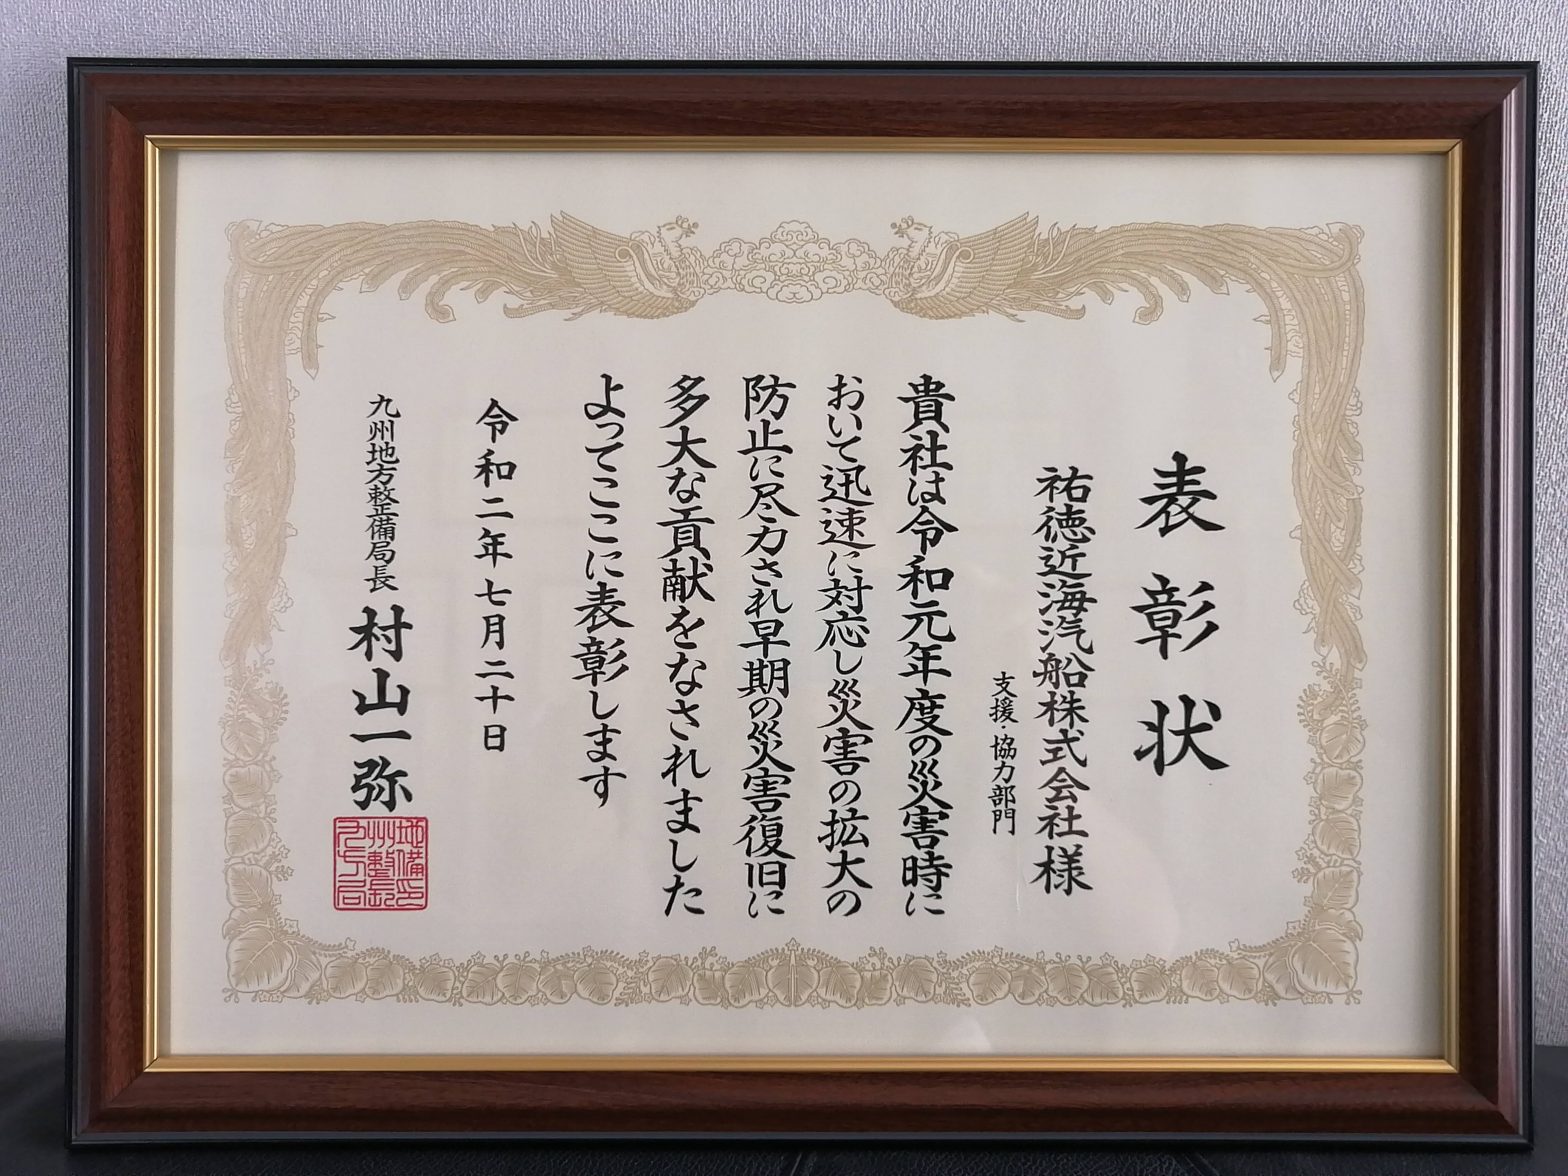 表彰状
祐徳近海汽船株式会社様
支援・協力部門
貴社は令和元年度の災害時に
おいて迅速に対応し災害の拡大の
防止に尽力され早期の災害復旧に
多大な貢献をなされました
よってここに表彰します
令和二年七月二十日
九州地方整備局長 村山一弥